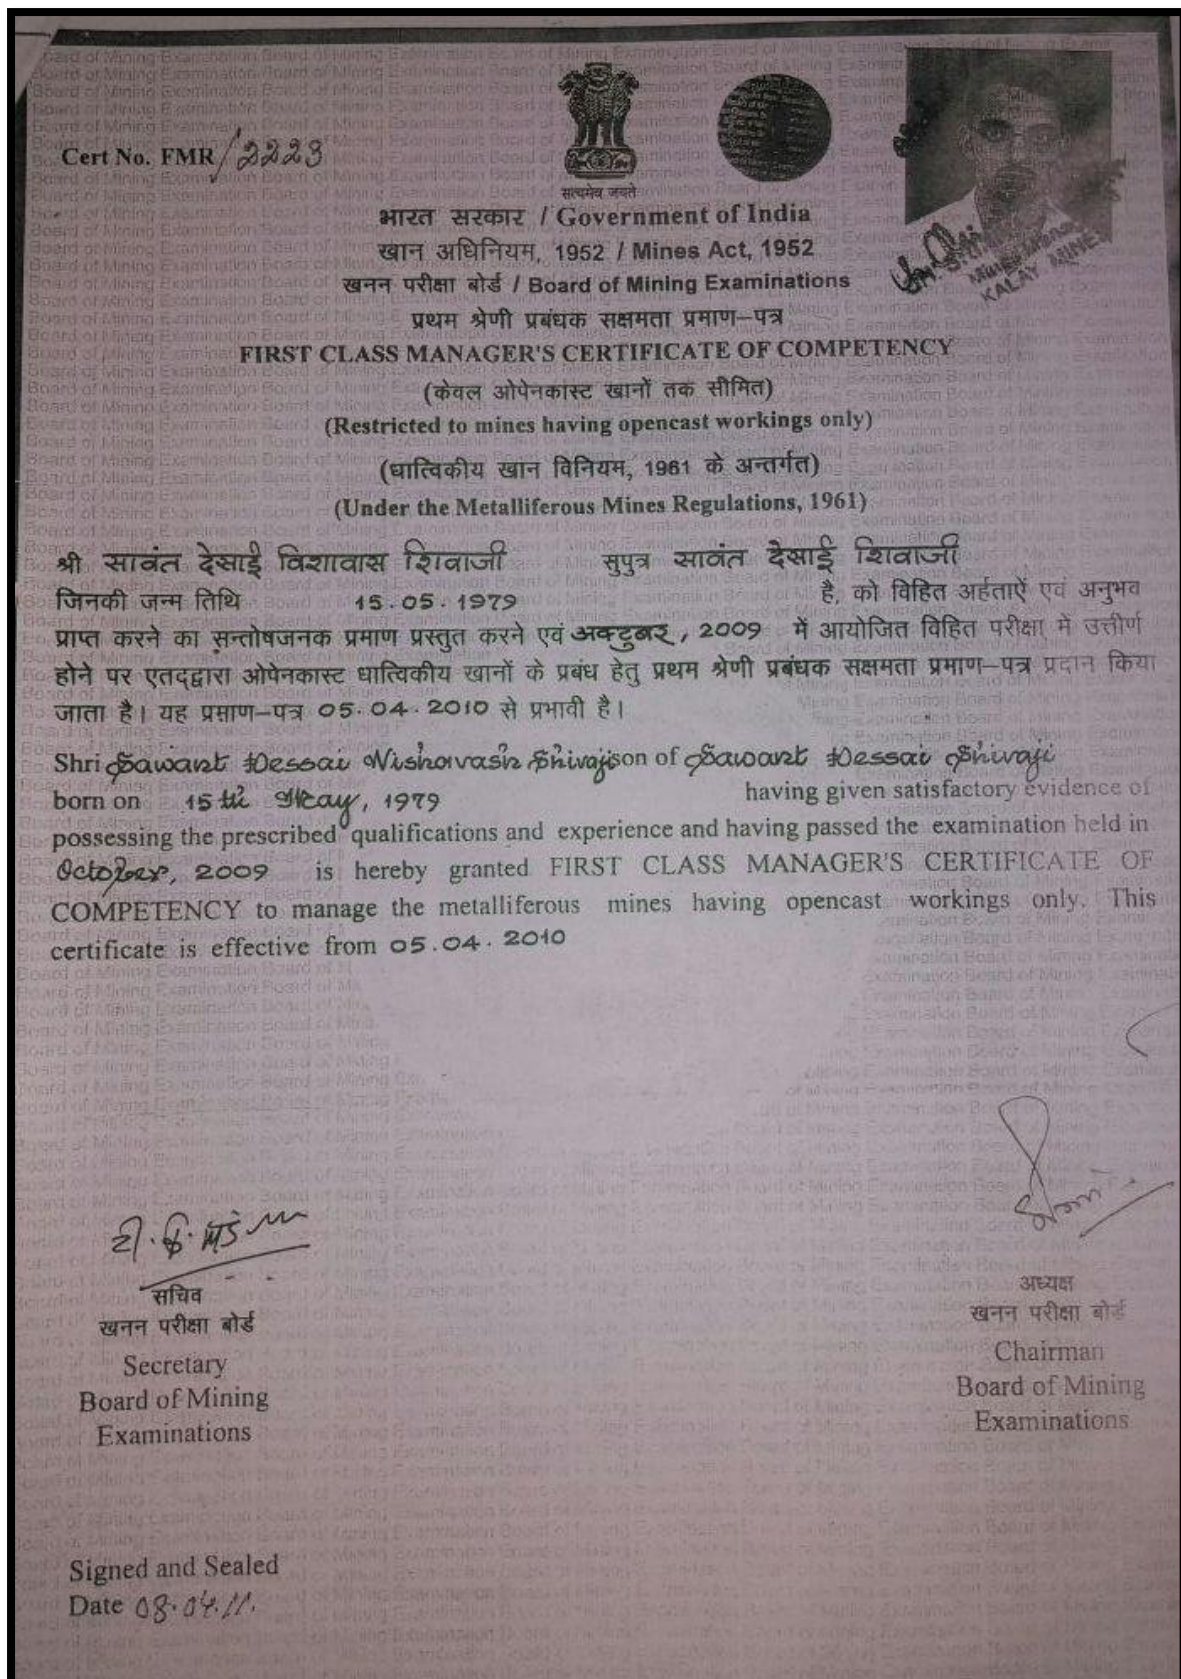 Cert No. FMR/2223
सत्यमेव जयते
भारत सरकार / Government of India
खान अधिनियम, 1952 / Mines Act, 1952
खनन परीक्षा बोर्ड / Board of Mining Examinations
प्रथम श्रेणी प्रबंधक सक्षमता प्रमाण–पत्र
FIRST CLASS MANAGER'S CERTIFICATE OF COMPETENCY
(केवल ओपेनकास्ट खानों तक सीमित)
(Restricted to mines having opencast workings only)
(धात्विकीय खान विनियम, 1961 के अन्तर्गत)
(Under the Metalliferous Mines Regulations, 1961)
KALAY MINES
श्री सावंत देसाई विशावास शिवाजी सुपुत्र सावंत देसाई शिवाजी
जिनकी जन्म तिथि 15.05.1979 है, को विहित अर्हताऐं एवं अनुभव
प्राप्त करने का सन्तोषजनक प्रमाण प्रस्तुत करने एवं अक्टुबर, 2009 में आयोजित विहित परीक्षा में उत्तीर्ण
होने पर एतद्द्वारा ओपेनकास्ट धात्विकीय खानों के प्रबंध हेतु प्रथम श्रेणी प्रबंधक सक्षमता प्रमाण–पत्र प्रदान किया
जाता है। यह प्रमाण–पत्र 05.04.2010 से प्रभावी है।
Shri Sawant Dessai Vishavash Shivaji son of Sawant Dessai Shivaji
born on 15th May, 1979 having given satisfactory evidence of
possessing the prescribed qualifications and experience and having passed the examination held in
October, 2009 is hereby granted FIRST CLASS MANAGER'S CERTIFICATE OF
COMPETENCY to manage the metalliferous mines having opencast workings only. This
certificate is effective from 05.04.2010
सचिव
खनन परीक्षा बोर्ड
Secretary
Board of Mining
Examinations
अध्यक्ष
खनन परीक्षा बोर्ड
Chairman
Board of Mining
Examinations
Signed and Sealed
Date 08.04.11.